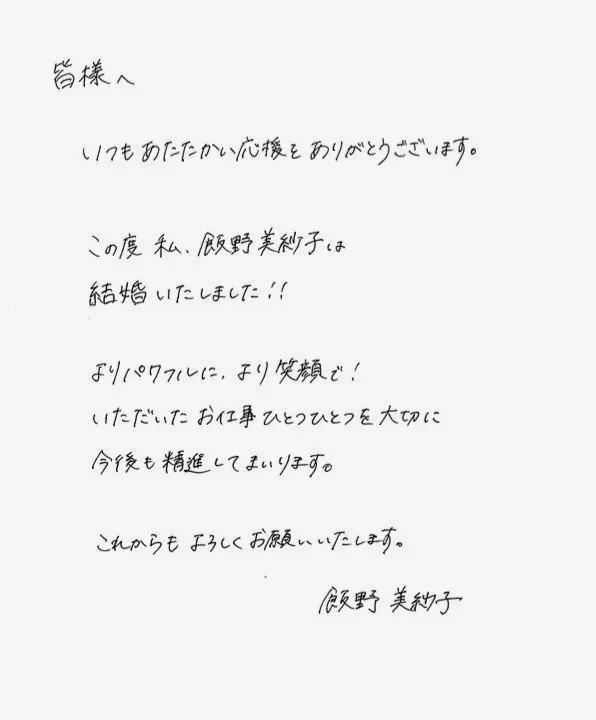 皆様へ
いつもあたたかい応援をありがとうございます。
この度 私、飯野美紗子は
結婚いたしました!!
よりパワフルに、より笑顔で!
いただいたお仕事ひとつひとつを大切に
今後も精進してまいります。
これからもよろしくお願いいたします。
飯野 美紗子